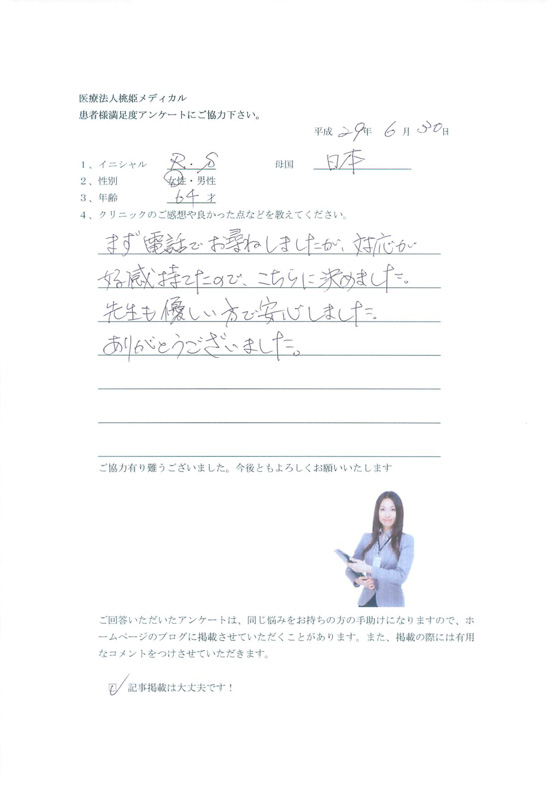 医療法人桃姫メディカル
患者様満足度アンケートにご協力下さい。
平成 29年 6月 30日
1、イニシャル R.S 母国 日本
2、性別 女性・男性
3、年齢 64 才
4、クリニックのご感想や良かった点などを教えてください。
まず電話でお尋ねしましたが、対応が
好感持てたので、こちらに決めました。
先生も優しい方で安心しました。
ありがとうございました。
ご協力有り難うございました。今後ともよろしくお願いいたします
ご回答いただいたアンケートは、同じ悩みをお持ちの方の手助けになりますので、ホ
ームページのブログに掲載させていただくことがあります。また、掲載の際には有用
なコメントをつけさせていただきます。
☑ 記事掲載は大丈夫です！